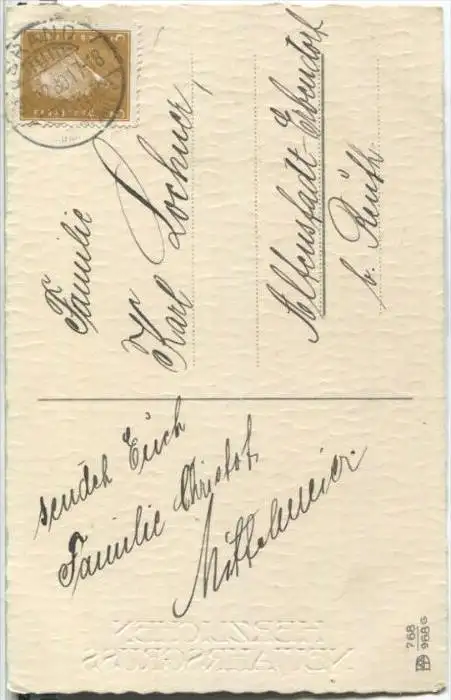 Familie
Karl Lochner,
Altenstadt-Erbendorf
b. Reuth
sendet Euch
Familie Christof
Mittelmeier.
HERZLICHEN
NEUJAHRSGRUSS
768
968 G